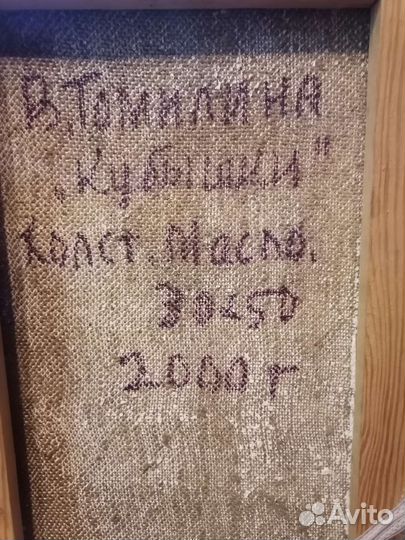 В. Томилина
„Кубышки"
Холст. Масло.
30x50
2000 г
Avito